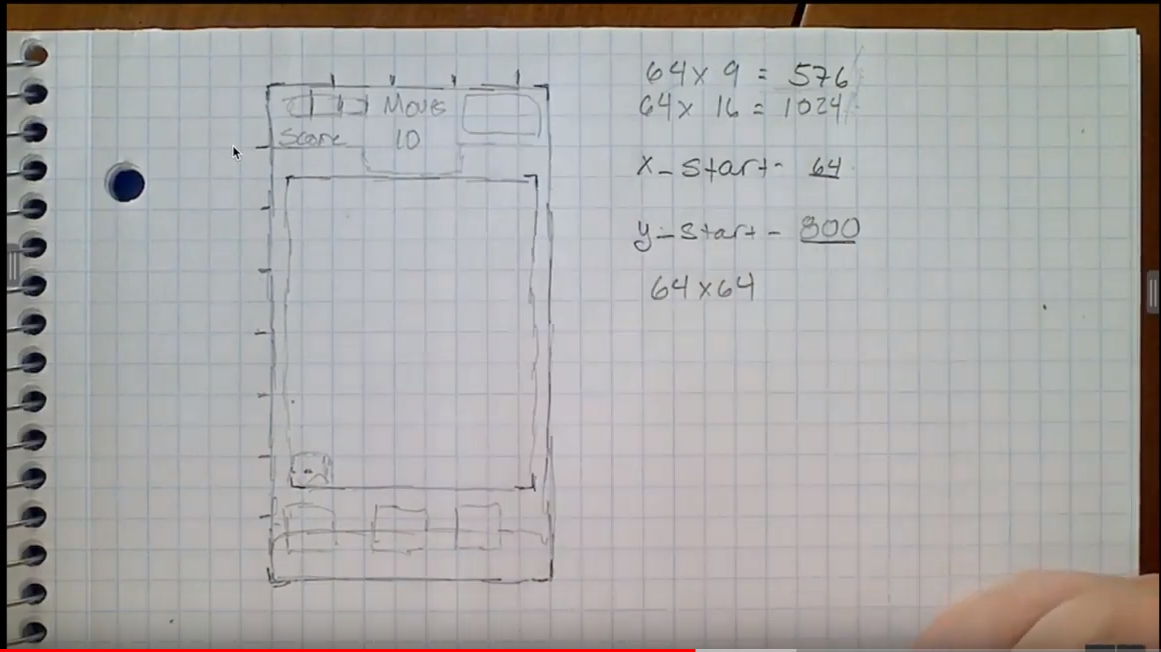 Moves
10
Score
64 x 9 = 576
64 x 16 = 1024
x_start - 64
y_start - 800
64 x 64